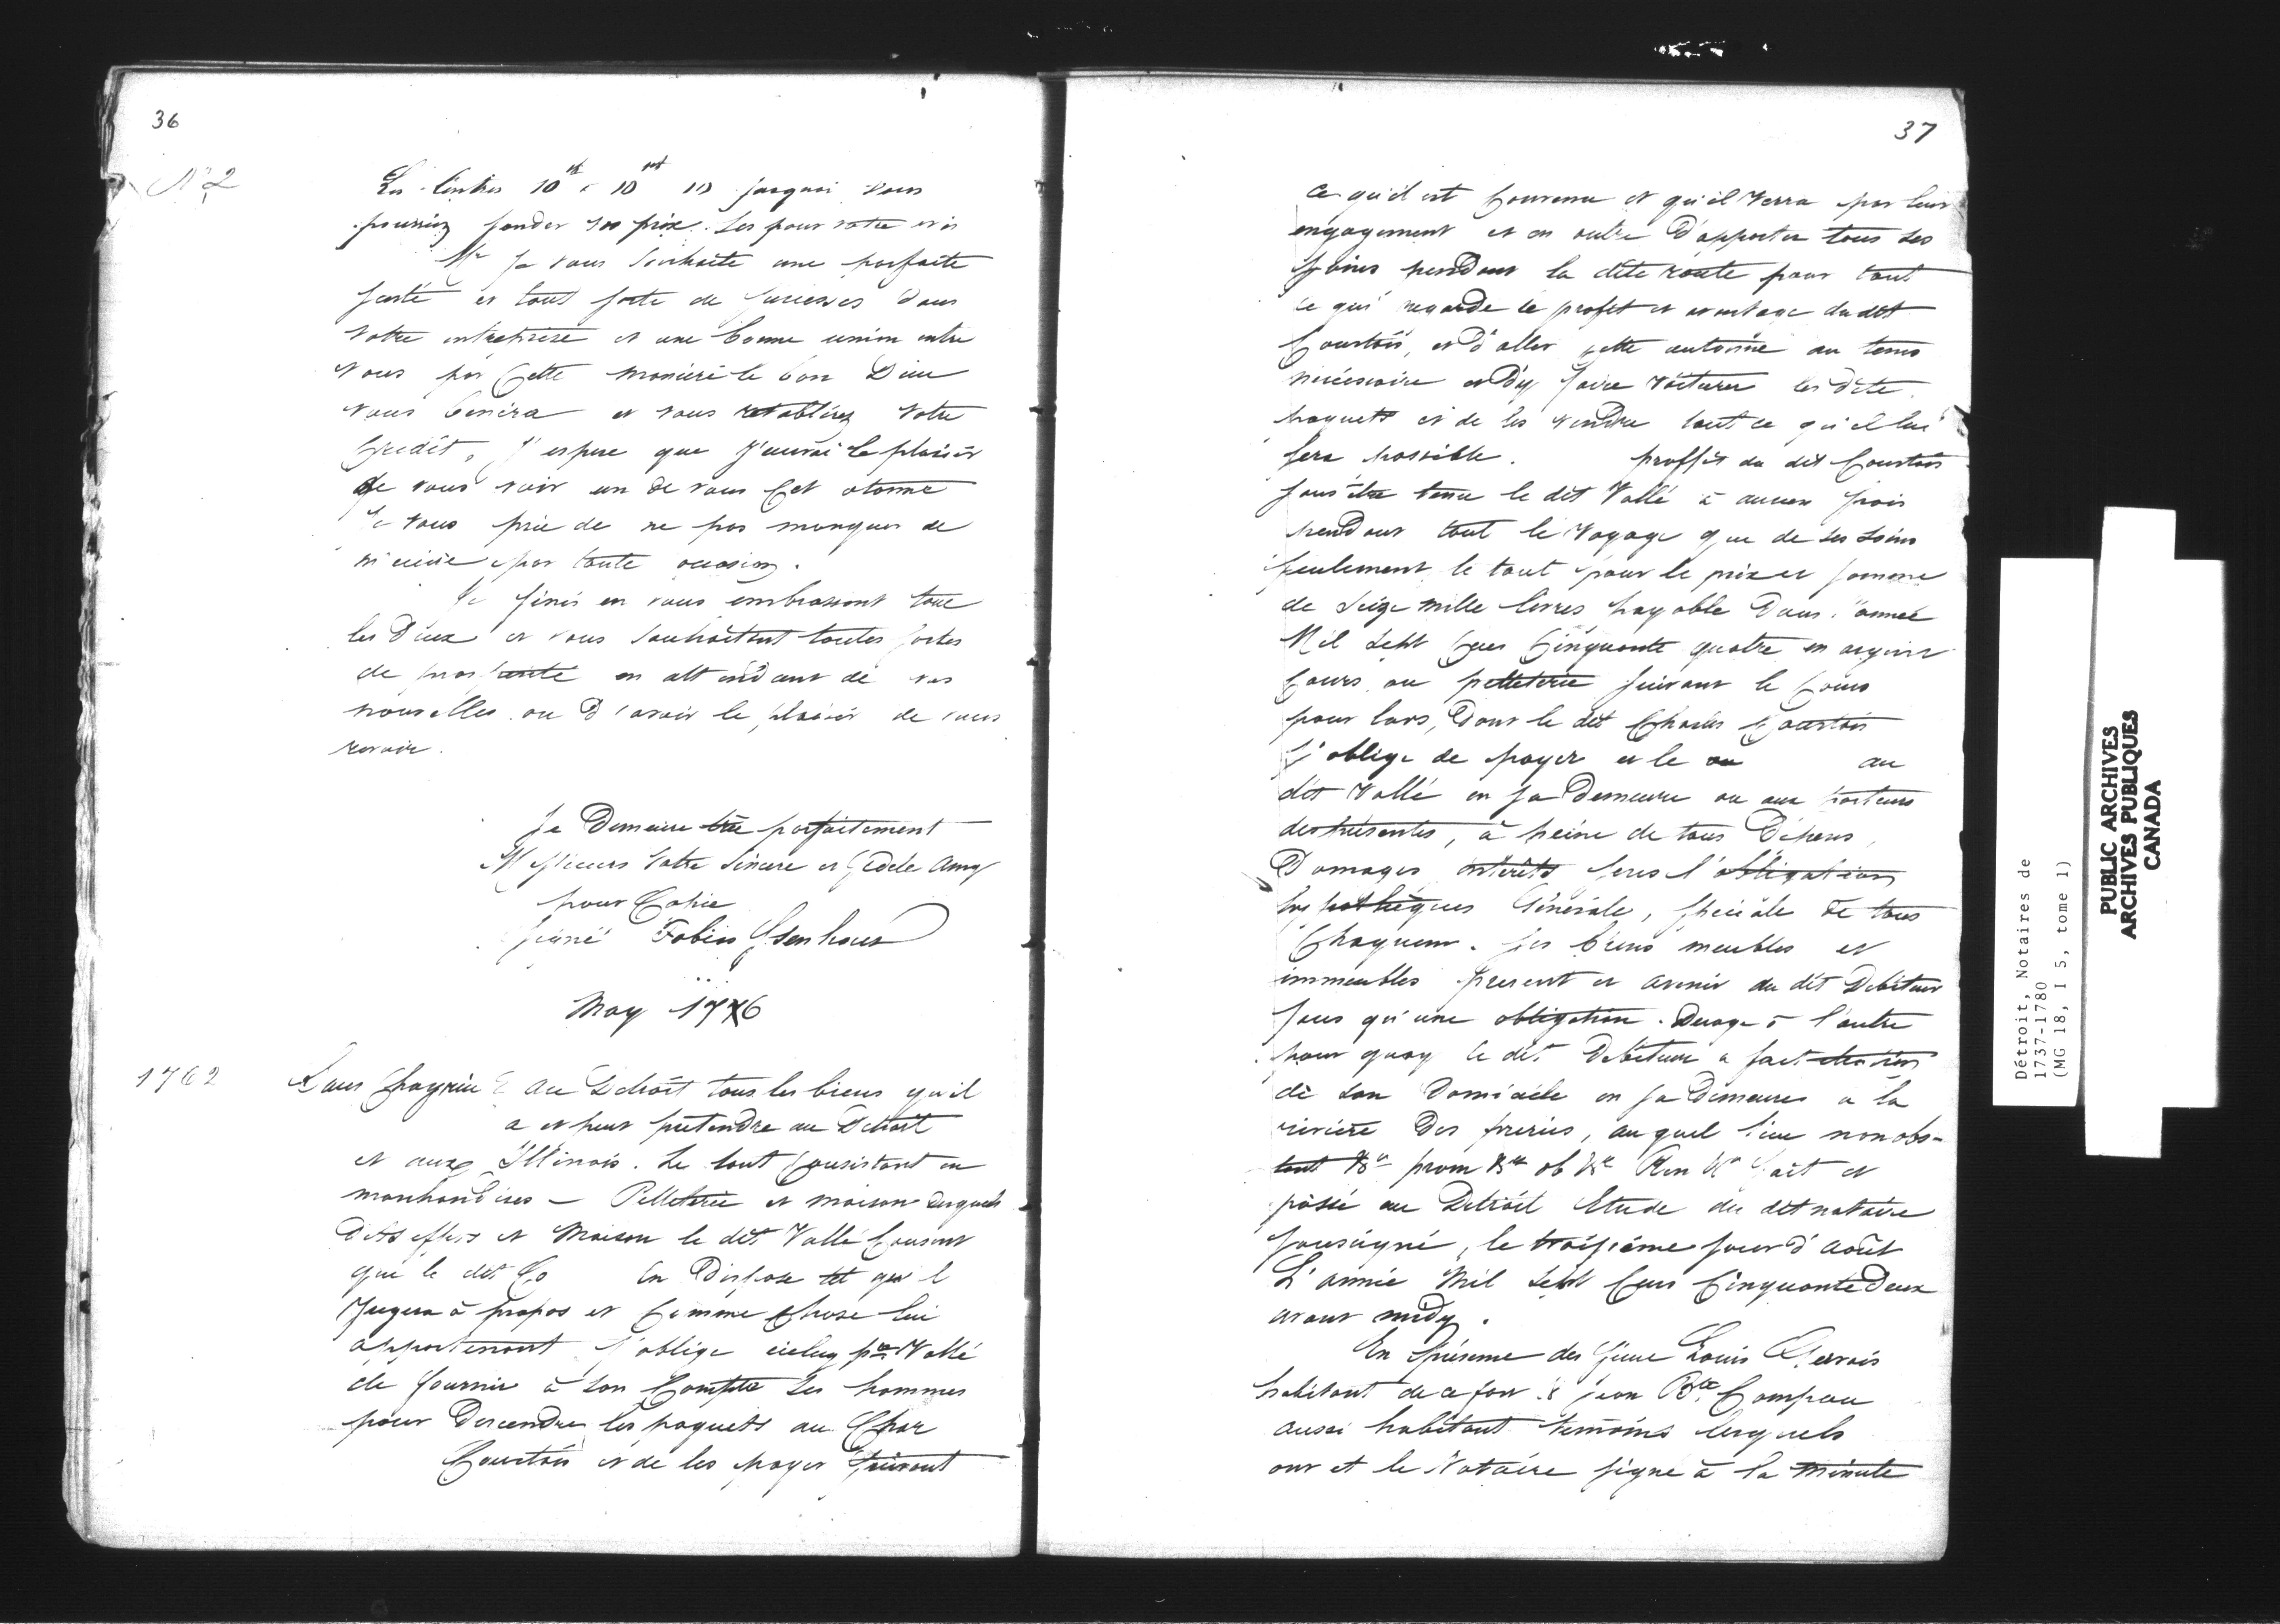 36
N° 2
Les 10 10 10 jusquoi vous
pourriez fonder vos prix. Les pour votre avis
Mr Je vous Souhaite une parfaite
santé et tout sorte de successes dans
votre entreprise et une bonne union entre
vous par Cette maniere le bon Dieu
vous benira et vous retablirez votre
Credit, J'espere que J'aurai le plaisir
de vous voir un de vous Cet otonne
Je vous prie de ne pas manquer de
m'ecrire par toute occasion.
Je finis en vous embrassant tous
les Deux et vous Souhaitant toutes sortes
de en attendant de vos
nouvelles ou D'avoir le plaisir de vous
revoir.
Je Demeure tres parfaitement
Messieurs Votre Sincere et fidele Amy
pour Copie
signé Tobias Isenhour
May 1776
1762
au Detroit tous les biens qu'il
a et peut pretendre au Detroit
et aux Illinois. Le tout Consistant en
marchandises — Pelleterie et maison desquels
Dits effets et Maison le dit Vallé Consent
que le dit Co en Dispose tet qu'l
Jugera à propos et Comme Chose lui
appartenant s'oblige iceluy Vallé
de fournir à son Compte Les hommes
pour Descendre les paquets au Char
Courtois et de les payer suivant
37
ce qu'il est Convenu et qu'il verra par leur
engagement et en outre D'apporter tous ses
soins pendant la dite route pour tout
ce qui regarde le profit et avantage du dit
Courtois, et D'aller cette automne au tems
nécéssaire et D'y faire voiturer les Dite
paquets et de les vendre tout ce qu'il lui
sera possible. proffit du dit Courtois
sans être tenu le dit Vallé à aucun frais
pendant tout le Voyage que de ses Soins
seulement, le tout pour le prix et somme
de Seize mille livres payable Dans l'année
Mil Sept Cens Cinquante quatre en argent
Cours ou pelleterie suivant le Cours
pour lors, Dont le dit Charles Courtois
s'oblige de payer et le au
dit Vallé en sa Demeure ou aux porteurs
des présentes, à peine de tous Dépens,
Domages intérêts sous l'obligation
hypothéques Générale, spéciale de tous
Chaqueun. ses biens meubles et
immeubles present et avenir du dit Debiteur
sans qu'une obligation. Deroge à l'autre
pour quoy le dit Debiteur a fait election
de son Domicile en sa Demeure a la
rivière Des prairies, auquel lieu nonobs-
tant prom ob Ren fait et
passé au Detroit Etude du dit notaire
soussigné, le troisième jour d'Août
L'année Mil Sept Cens Cinquante Deux
avant midy.
En présence des Sieur Louis Gervais
habitant de ce fort & Jean Bte Campeau
aussi habitant temoins lesquels
ont et le Notaire signe à la minute
Détroit, Notaires de
1737-1780
(MG 18, I 5, tome 1)
PUBLIC ARCHIVES
ARCHIVES PUBLIQUES
CANADA